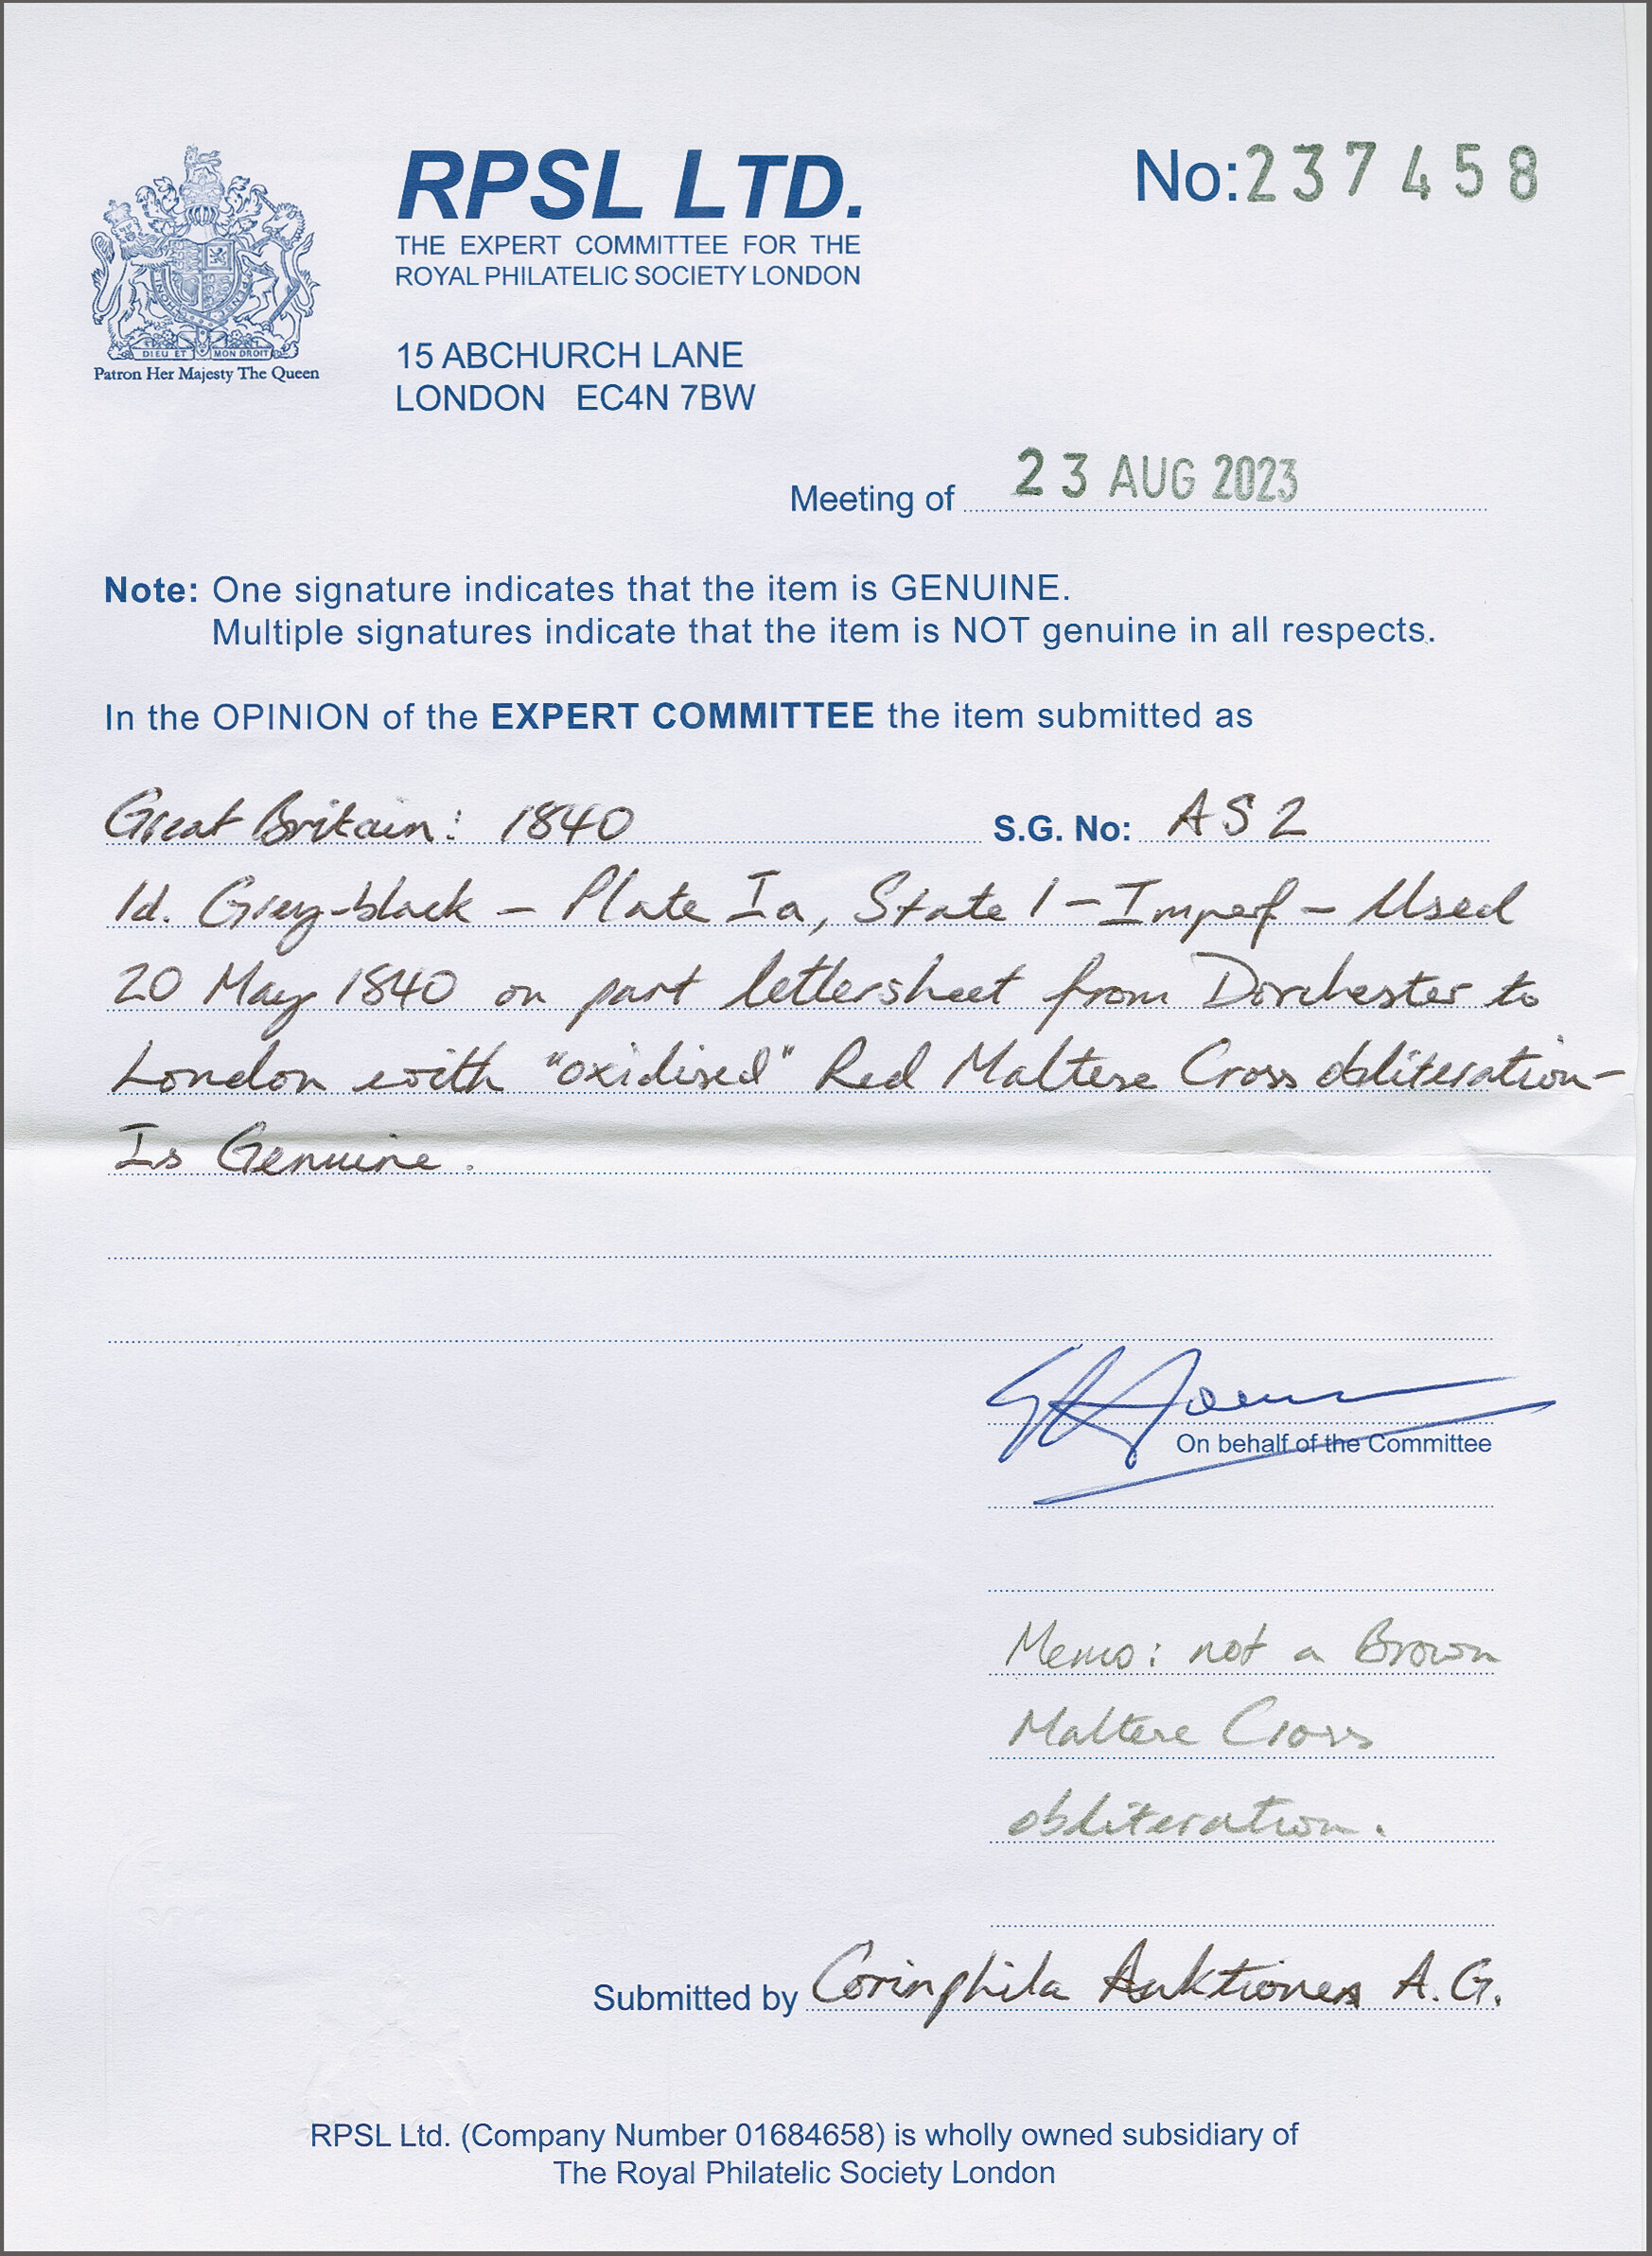 RPSL LTD.
THE EXPERT COMMITTEE FOR THE
ROYAL PHILATELIC SOCIETY LONDON
No: 237458
DIEU ET MON DROIT
Patron Her Majesty The Queen
15 ABCHURCH LANE
LONDON EC4N 7BW
Meeting of 23 AUG 2023
Note: One signature indicates that the item is GENUINE.
Multiple signatures indicate that the item is NOT genuine in all respects.
In the OPINION of the EXPERT COMMITTEE the item submitted as
Great Britain: 1840 S.G. No: AS2
1d. Grey-black – Plate Ia, State 1 – Imperf – Used
20 May 1840 on part lettersheet from Dorchester to
London with "oxidised" Red Maltese Cross obliteration –
Is Genuine.
On behalf of the Committee
Memo: not a Brown
Maltese Cross
obliteration.
Submitted by Corinphila Auktionen A.G.
RPSL Ltd. (Company Number 01684658) is wholly owned subsidiary of
The Royal Philatelic Society London